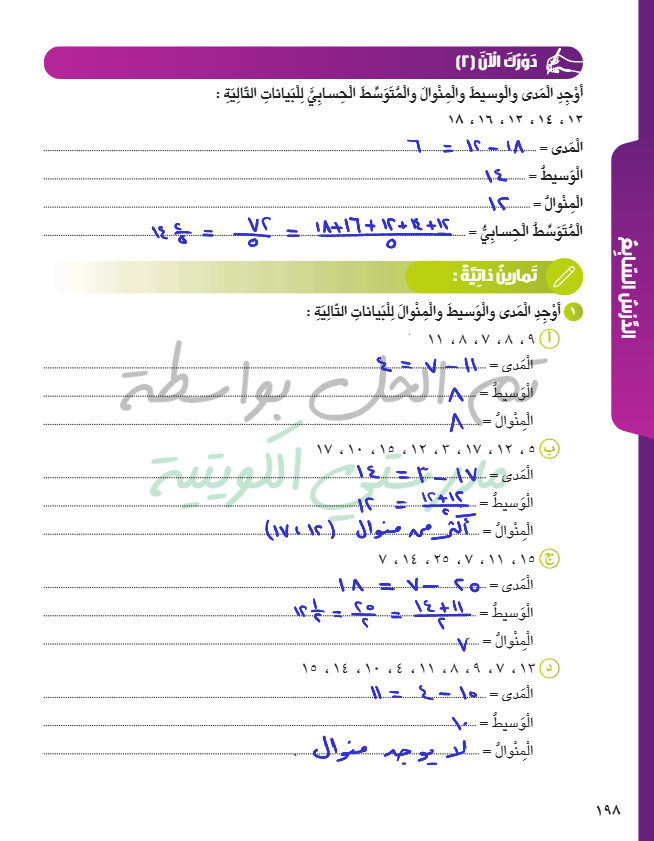 دَوْرُكَ الْآنَ (٢)
أَوْجِدِ الْمَدى والْوسيطَ والْمِنْوالَ والْمُتَوَسِّطَ الْحِسابِيَّ لِلْبَياناتِ التّالِيَةِ :
١٢ ، ١٤ ، ١٢ ، ١٦ ، ١٨
الْمَدى = ١٨ – ١٢ = ٦
الْوَسيطُ = ١٤
الْمِنْوالُ = ١٢
الْمُتَوَسِّطُ الْحِسابِيُّ = ١٢+١٤+١٢+١٦+١٨ / ٥ = ٧٢ / ٥ = ١٤ ٢/٥
تَمارينُ ذاتِيَّةٌ :
١ أَوْجِدِ الْمَدى والْوَسيطَ والْمِنْوالَ لِلْبَياناتِ التّالِيَةِ :
أ ٩ ، ٨ ، ٧ ، ٨ ، ١١
الْمَدى = ١١ – ٧ = ٤
الْوَسيطُ = ٨
الْمِنْوالُ = ٨
تم الحل بواسطة
مدرستي الكويتية
ب ٥ ، ١٢ ، ١٧ ، ٣ ، ١٢ ، ١٥ ، ١٠ ، ١٧
الْمَدى = ١٧ – ٣ = ١٤
الْوَسيطُ = ١٢+١٢ / ٢ = ١٢
الْمِنْوالُ = أكثر من منوال (١٢ ، ١٧)
ج ١٥ ، ١١ ، ٧ ، ٢٥ ، ١٤ ، ٧
الْمَدى = ٢٥ – ٧ = ١٨
الْوَسيطُ = ١١+١٤ / ٢ = ٢٥ / ٢ = ١٢ ١/٢
الْمِنْوالُ = ٧
د ١٣ ، ٧ ، ٩ ، ٨ ، ١١ ، ٤ ، ١٠ ، ١٤ ، ١٥
الْمَدى = ١٥ – ٤ = ١١
الْوَسيطُ = ١٠
الْمِنْوالُ = لا يوجد منوال .
الدَّرْسُ السّابِعُ
١٩٨